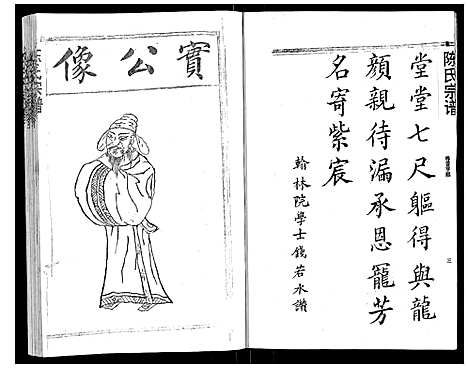 陈氏宗谱
三
堂堂七尺軀得與龍
顔親待漏承恩寵芳
名寄紫宸
翰林院學士錢若水讃
實公像